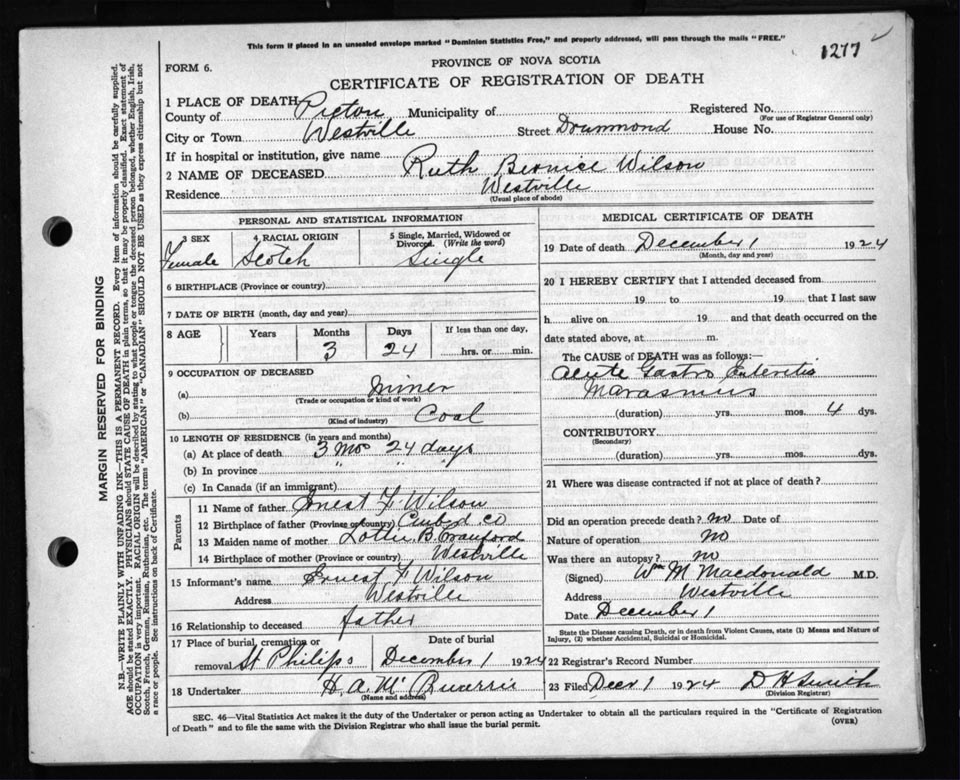 This form if placed in an unsealed envelope marked "Dominion Statistics Free," and properly addressed, will pass through the mails "FREE."
1277
FORM 6.
PROVINCE OF NOVA SCOTIA
CERTIFICATE OF REGISTRATION OF DEATH
1 PLACE OF DEATH
County of Pictou Municipality of Registered No.
(For use of Registrar General only)
City or Town Westville Street Drummond House No.
If in hospital or institution, give name
2 NAME OF DECEASED Ruth Bernice Wilson
Residence Westville
(Usual place of abode)
PERSONAL AND STATISTICAL INFORMATION
3 SEX 4 RACIAL ORIGIN 5 Single, Married, Widowed or Divorced. (Write the word)
Female Scotch Single
6 BIRTHPLACE (Province or country)
7 DATE OF BIRTH (month, day and year)
8 AGE Years Months Days If less than one day,
3 24 hrs. or min.
9 OCCUPATION OF DECEASED
(a) Miner
(Trade or occupation or kind of work)
(b) Coal
(Kind of industry)
10 LENGTH OF RESIDENCE (in years and months)
(a) At place of death 3 Mos 24 days
(b) In province " " "
(c) In Canada (if an immigrant)
Parents
11 Name of father Ernest F Wilson
12 Birthplace of father (Province or country) Cumbd Co
13 Maiden name of mother Lottie B Crawford
14 Birthplace of mother (Province or country) Westville
15 Informant's name Ernest F Wilson
Address Westville
16 Relationship to deceased father
17 Place of burial, cremation or removal St Philips Date of burial December 1 1924
18 Undertaker H. A. Mc
(Name and address)
MEDICAL CERTIFICATE OF DEATH
19 Date of death December 1 1924
(Month, day and year)
20 I HEREBY CERTIFY that I attended deceased from
19 to 19 that I last saw
h alive on 19 and that death occurred on the
date stated above, at m.
The CAUSE of DEATH was as follows:
Acute Gastro Enteritis
Marasmus
(duration) yrs. mos. 4 dys.
CONTRIBUTORY
(Secondary)
(duration) yrs. mos. dys.
21 Where was disease contracted if not at place of death?
Did an operation precede death? no Date of
Nature of operation no
Was there an autopsy? no
(Signed) Wm M Macdonald M.D.
Address Westville
Date December 1
State the Disease causing Death, or in death from Violent Causes, state (1) Means and Nature of Injury, (2) whether Accidental, Suicidal or Homicidal.
22 Registrar's Record Number
23 Filed Decr 1 1924 D H Smith
(Division Registrar)
SEC. 46—Vital Statistics Act makes it the duty of the Undertaker or person acting as Undertaker to obtain all the particulars required in the "Certificate of Registration
of Death" and to file the same with the Division Registrar who shall issue the burial permit.
(OVER)
MARGIN RESERVED FOR BINDING
N.B.—WRITE PLAINLY WITH UNFADING INK—THIS IS A PERMANENT RECORD. Every item of information should be carefully supplied.
AGE should be stated EXACTLY. PHYSICIANS should STATE CAUSE OF DEATH in plain terms, so that it may be properly classified. Exact statement of
OCCUPATION is very important. RACIAL ORIGIN will be described by stating to what people or tongue the deceased person belonged, whether English, Irish,
Scotch, French, German, Russian, Ruthenian, etc. The terms "AMERICAN" or "CANADIAN" SHOULD NOT BE USED as they express citizenship but not
a race or people. See instructions on back of Certificate.